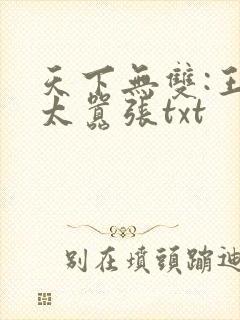 天下無雙:王
太囂張txt
別在墳頭蹦迪